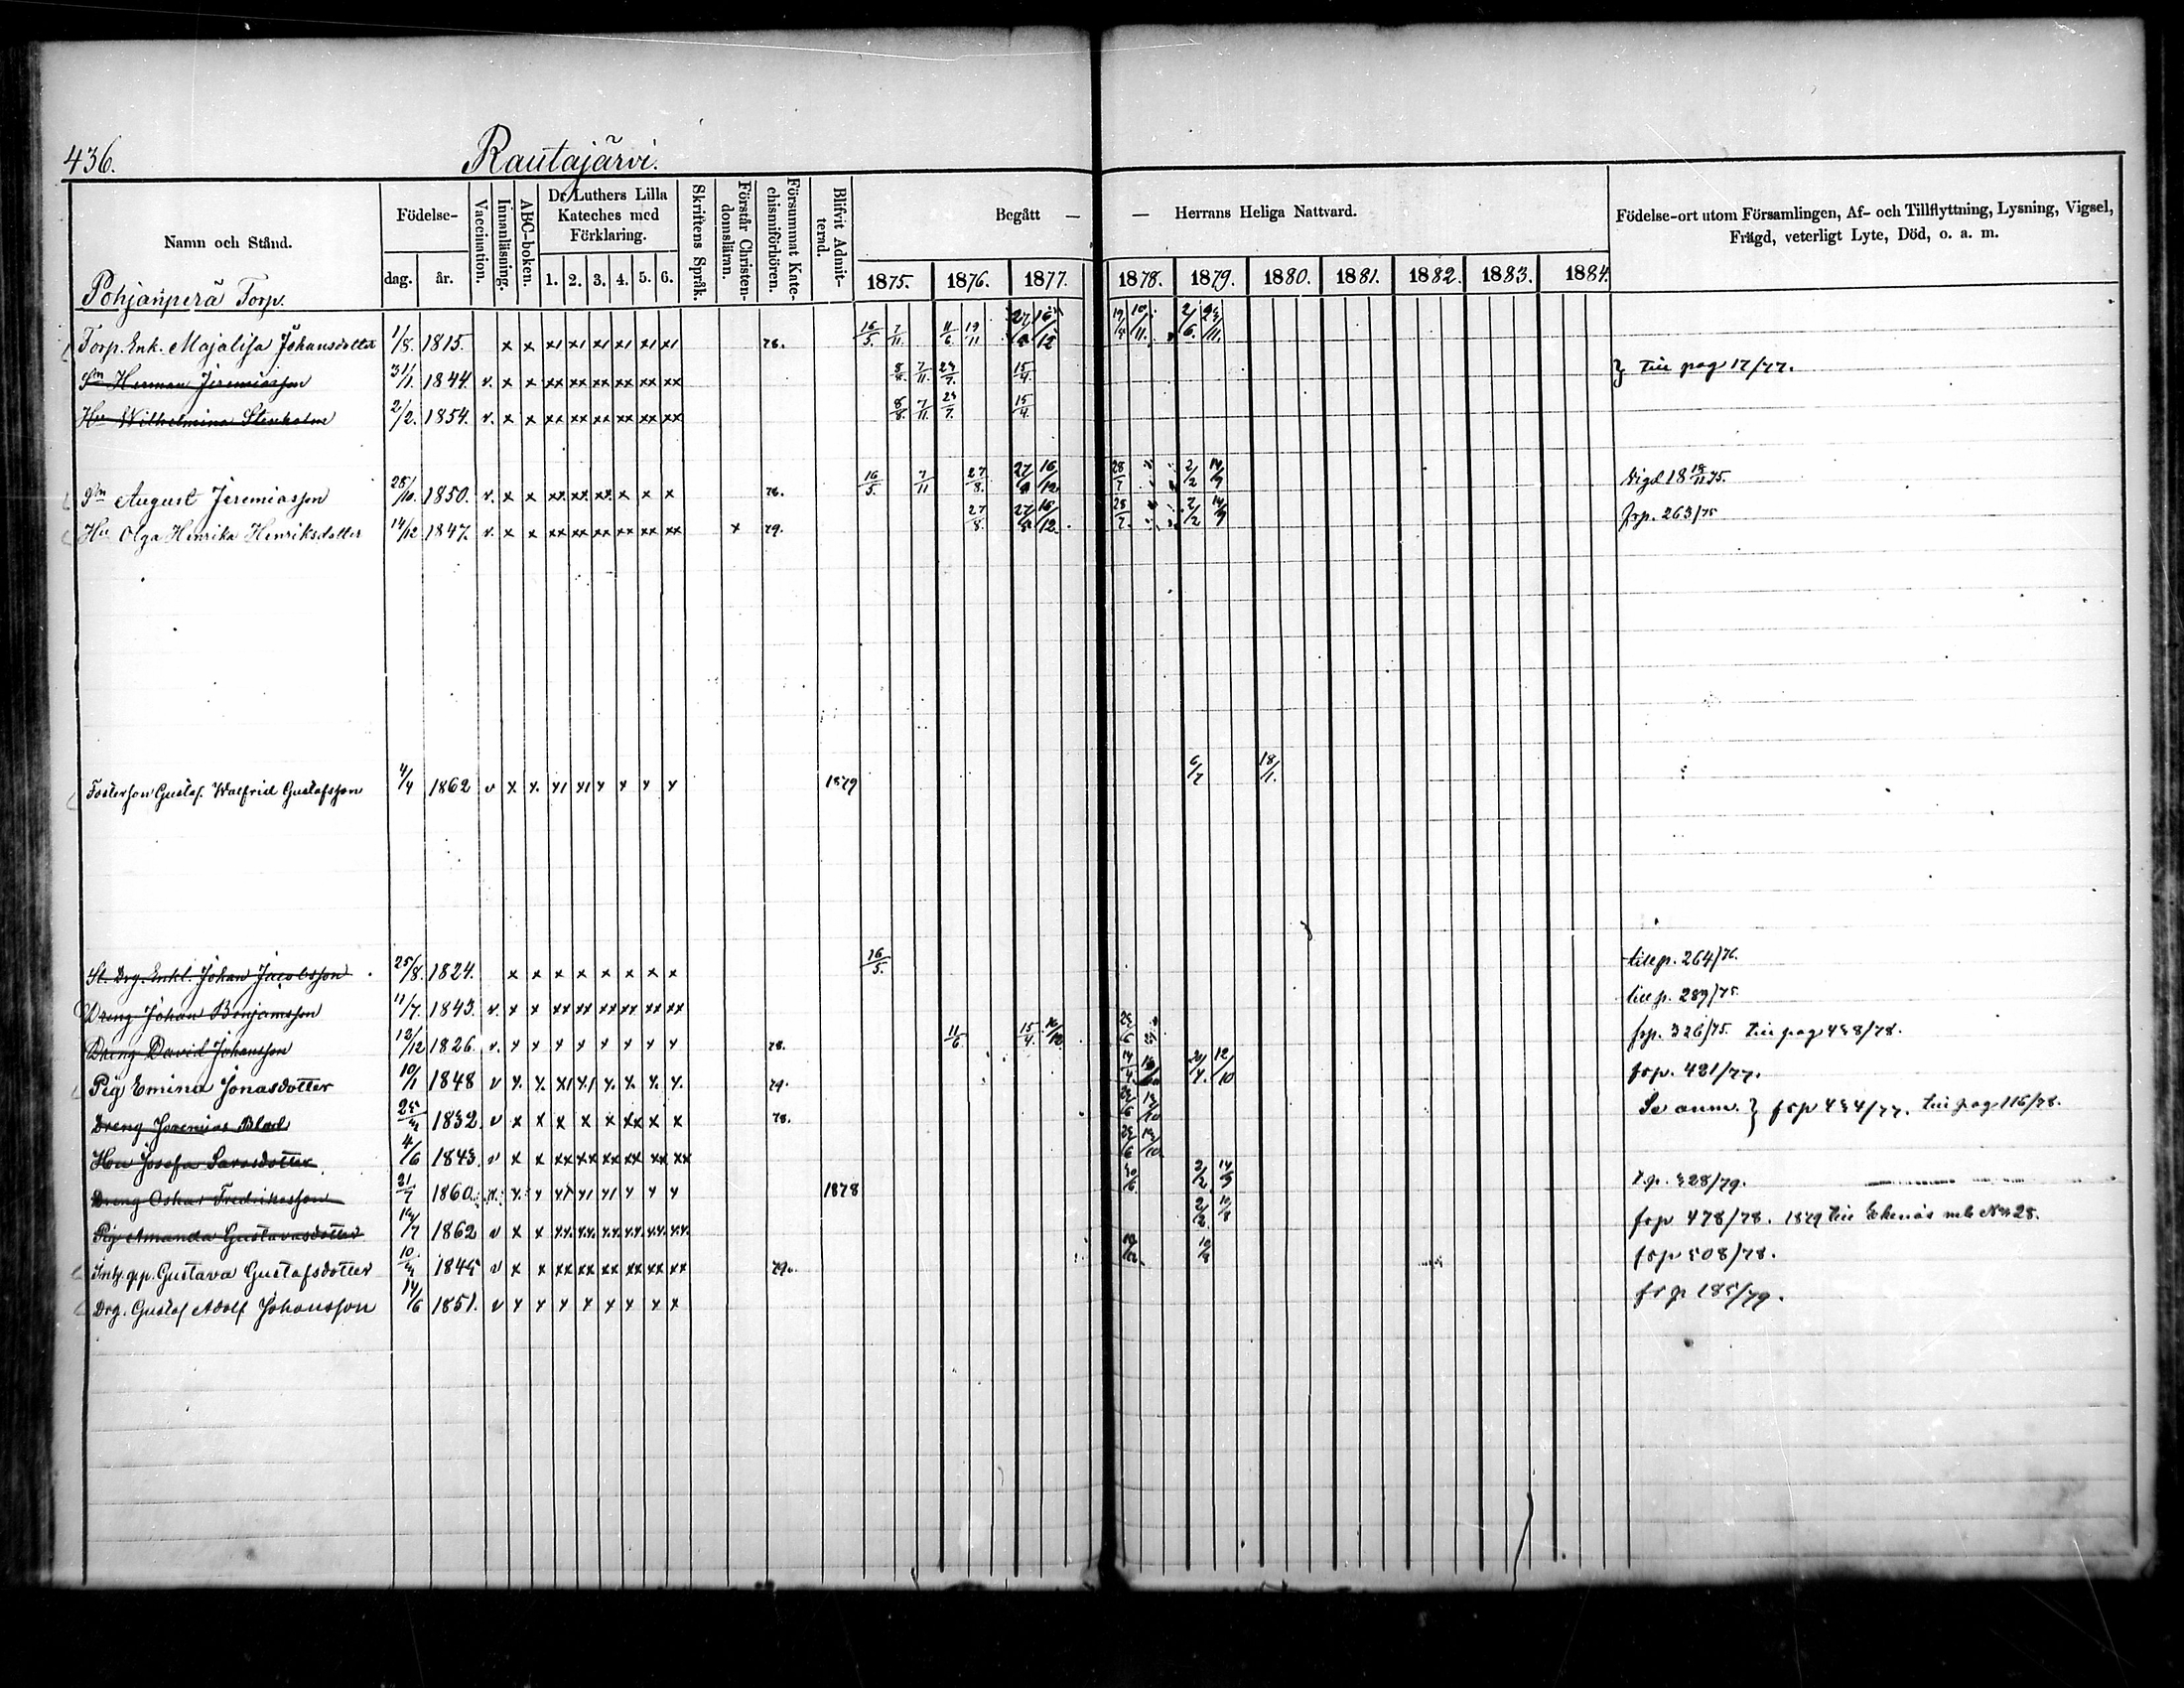 436.
Rautajärvi.
Namn och Stånd. Födelse- dag. år. Vaccination. Innanläsning. ABC-boken. Dr Luthers Lilla Kateches med Förklaring. 1. 2. 3. 4. 5. 6. Skriftens Språk. Förstår Christendomsläran. Försummat Katechismiförhören. Blifvit Admitterad. Begått — — Herrans Heliga Nattvard. 1875. 1876. 1877. 1878. 1879. 1880. 1881. 1882. 1883. 1884. Födelse-ort utom Församlingen, Af- och Tillflyttning, Lysning, Vigsel, Frägd, veterligt Lyte, Död, o. a. m.
Pohjanperä Torp.
Torp. Enk. Majalisa Johansdotter 1/8. 1815. x x x1 x1 x1 x1 x1 x1 78. 16/5. 7/11. 11/6 19/11
Sn Herman Jeremiasson 31/1. 1844. v. x x xx xx xx xx xx xx 7/11. 15/4. } till pag 17/77.
Hu Wilhelmina Stenholm 2/2. 1854. v. x x xx xx xx xx xx xx 7/11. 15/4.
Sn August Jeremiasson 28/10. 1850. v. x x xx xx x x x 78. 16/5. 7/11 27/8. 16/12 28/7 2/2 14/9 Vigd 18 18/11 75.
Hu Olga Henrika Henriksdotter 14/12 1847. v. x x xx xx xx xx xx xx x 79. 27/8. 16/12. 28/7. 2/2 14/9 frp. 263/75
Fosterson Gustaf Walfrid Gustafsson 4/4 1862 v x x x1 x1 x x x x 1879 6/7 18/1.
St. Drg. Enkl. Johan Jacobsson 25/8. 1824. x x x x x x x x 16/5. till p. 264/76.
Dreng Johan Benjamsson 11/7. 1843. v. x x xx xx xx xx xx xx till p. 289/75.
Dreng David Johansson 12/12 1826. v. x x x x x x x x 78. 11/6 15/4. frp. 326/75. till pag 438/78.
Pig Emina Jonasdotter 10/1 1848 v x x x1 x1 x x x x 79. 14/4 12/10 frp. 421/77.
Dreng Jeremias Blad 1832. v x x x x x xx x x 78. Se anm. } frp 434/77. till pag 116/78.
Hu Josefa Sarasdotter 4/6 1843. v x x xx xx xx xx xx xx
Dreng Oskar Fredriksson 21/7 1860. x x x1 x1 x1 x x x 1878 30/6. 2/2 14/9 328/79.
Pig Amanda Gustavasdotter 1862 v x x xx xx xx xx xx xx 2/2 10/8 frp 478/78. 1879 till Ekenäs mb No 28.
Inh. pp. Gustava Gustafsdotter 1845 v x x xx xx xx xx xx xx 79. frp 508/78.
Drg. Gustaf Adolf Johansson 14/6 1851. v x x x x x x x x frp 185/79.